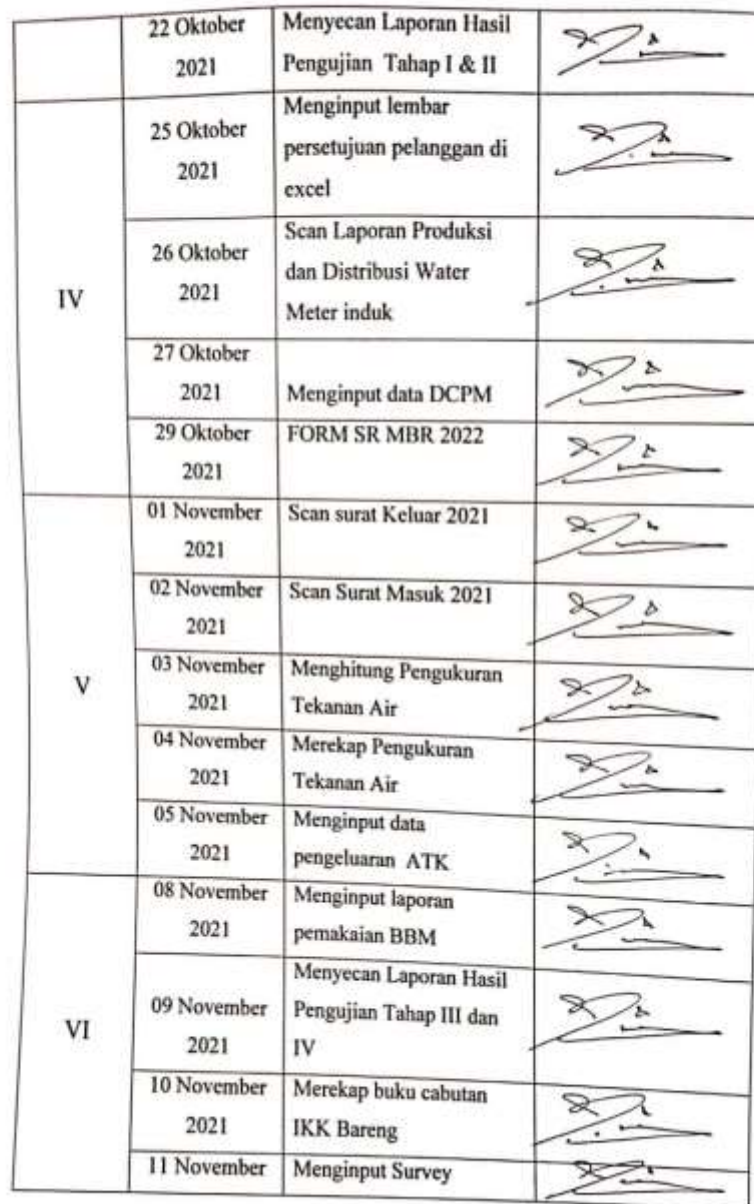 22 Oktober
2021
Menyecan Laporan Hasil
Pengujian Tahap I & II
IV
25 Oktober
2021
Menginput lembar
persetujuan pelanggan di
excel
26 Oktober
2021
Scan Laporan Produksi
dan Distribusi Water
Meter induk
27 Oktober
2021
Menginput data DCPM
29 Oktober
2021
FORM SR MBR 2022
V
01 November
2021
Scan surat Keluar 2021
02 November
2021
Scan Surat Masuk 2021
03 November
2021
Menghitung Pengukuran
Tekanan Air
04 November
2021
Merekap Pengukuran
Tekanan Air
05 November
2021
Menginput data
pengeluaran ATK
VI
08 November
2021
Menginput laporan
pemakaian BBM
09 November
2021
Menyecan Laporan Hasil
Pengujian Tahap III dan
IV
10 November
2021
Merekap buku cabutan
IKK Bareng
11 November
Menginput Survey